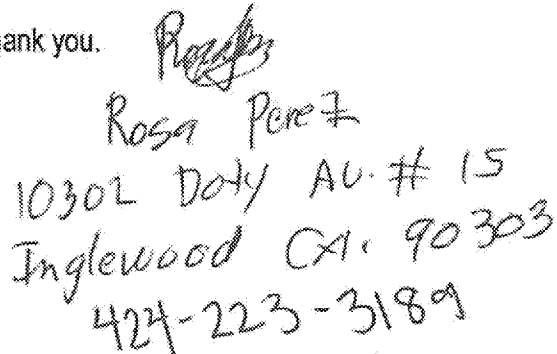 ank you.
Rosa Perez
10302 Doty AV. # 15
Inglewood CA. 90303
424-223-3189